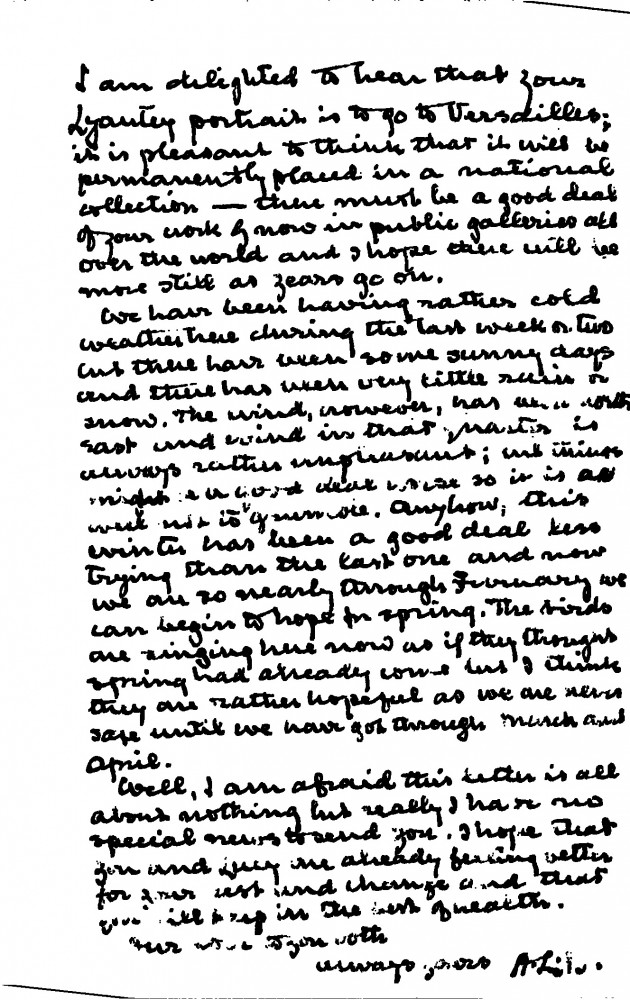 I am delighted to hear that your
Lyautey portrait is to go to Versailles;
it is pleasant to think that it will be
permanently placed in a national
collection — there must be a good deal
of your work by now in public galleries all
over the world and I hope there will be
more still as years go on.
We have been having rather cold
weather here during the last week or two
but there have been some sunny days
and there has been very little rain or
snow. The wind, however, has been north
east and wind in that quarter is
always rather unpleasant; but things
might be a good deal worse so it is as
well not to grumble. Anyhow, this
winter has been a good deal less
trying than the last one and now
we are so nearly through February we
can begin to hope for spring. The birds
are singing here now as if they thought
spring had already come but I think
they are rather hopeful as we are never
safe until we have got through March and
April.
Well, I am afraid this letter is all
about nothing but really I have no
special news to send you. I hope that
you and Lucy are already feeling better
for your rest and change and that
you will keep in the best of health.
to you both
always yours